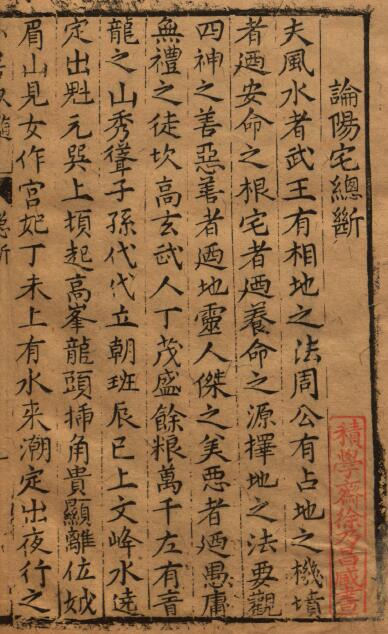 論陽宅總斷
夫風水者武王有相地之法周公有占地之機墳
者廼安命之根宅者廼養命之源擇地之法要觀
四神之善惡善者廼地靈人傑之美惡者廼愚庸
無禮之徒坎高玄武人丁茂盛餘粮萬千左有青
龍之山秀聳子孫代代立朝班辰巳上文峰水遶
定出魁元巽上頓起高峯龍頭揷角貴顯離位娥
眉山見女作宮妃丁未上有水來潮定出夜行之
積學齋徐乃昌藏書